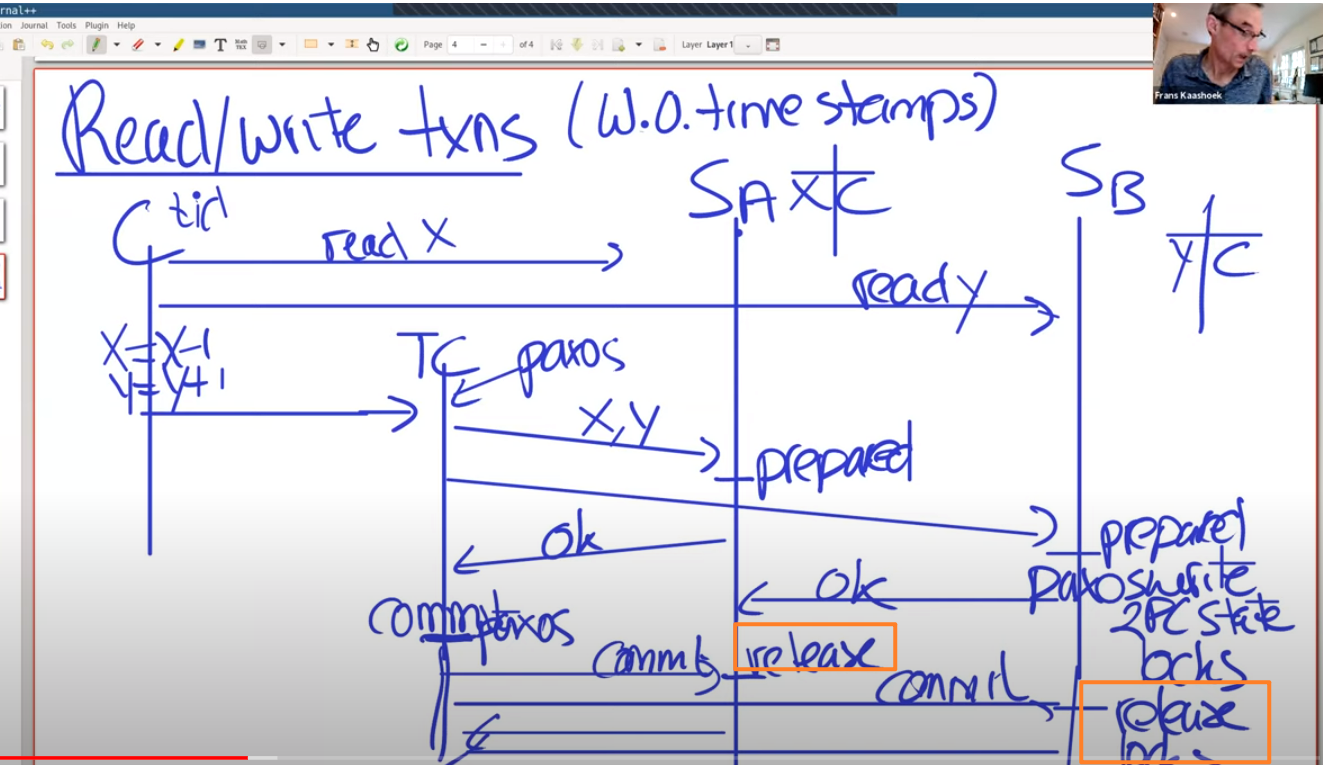 rnal++
ion Journal Tools Plugin Help
Page 4 of 4 Layer Layer 1
Frans Kaashoek
Read/write txns (W.O. time stamps)
C tid
SA X C
SB
Y C
read X
read y
X=X-1
Y=Y+1
TC paxos
X,Y
prepared
ok
prepared
ok
paxos write
2PC state
locks
commit paxos
commit
release
commit
release